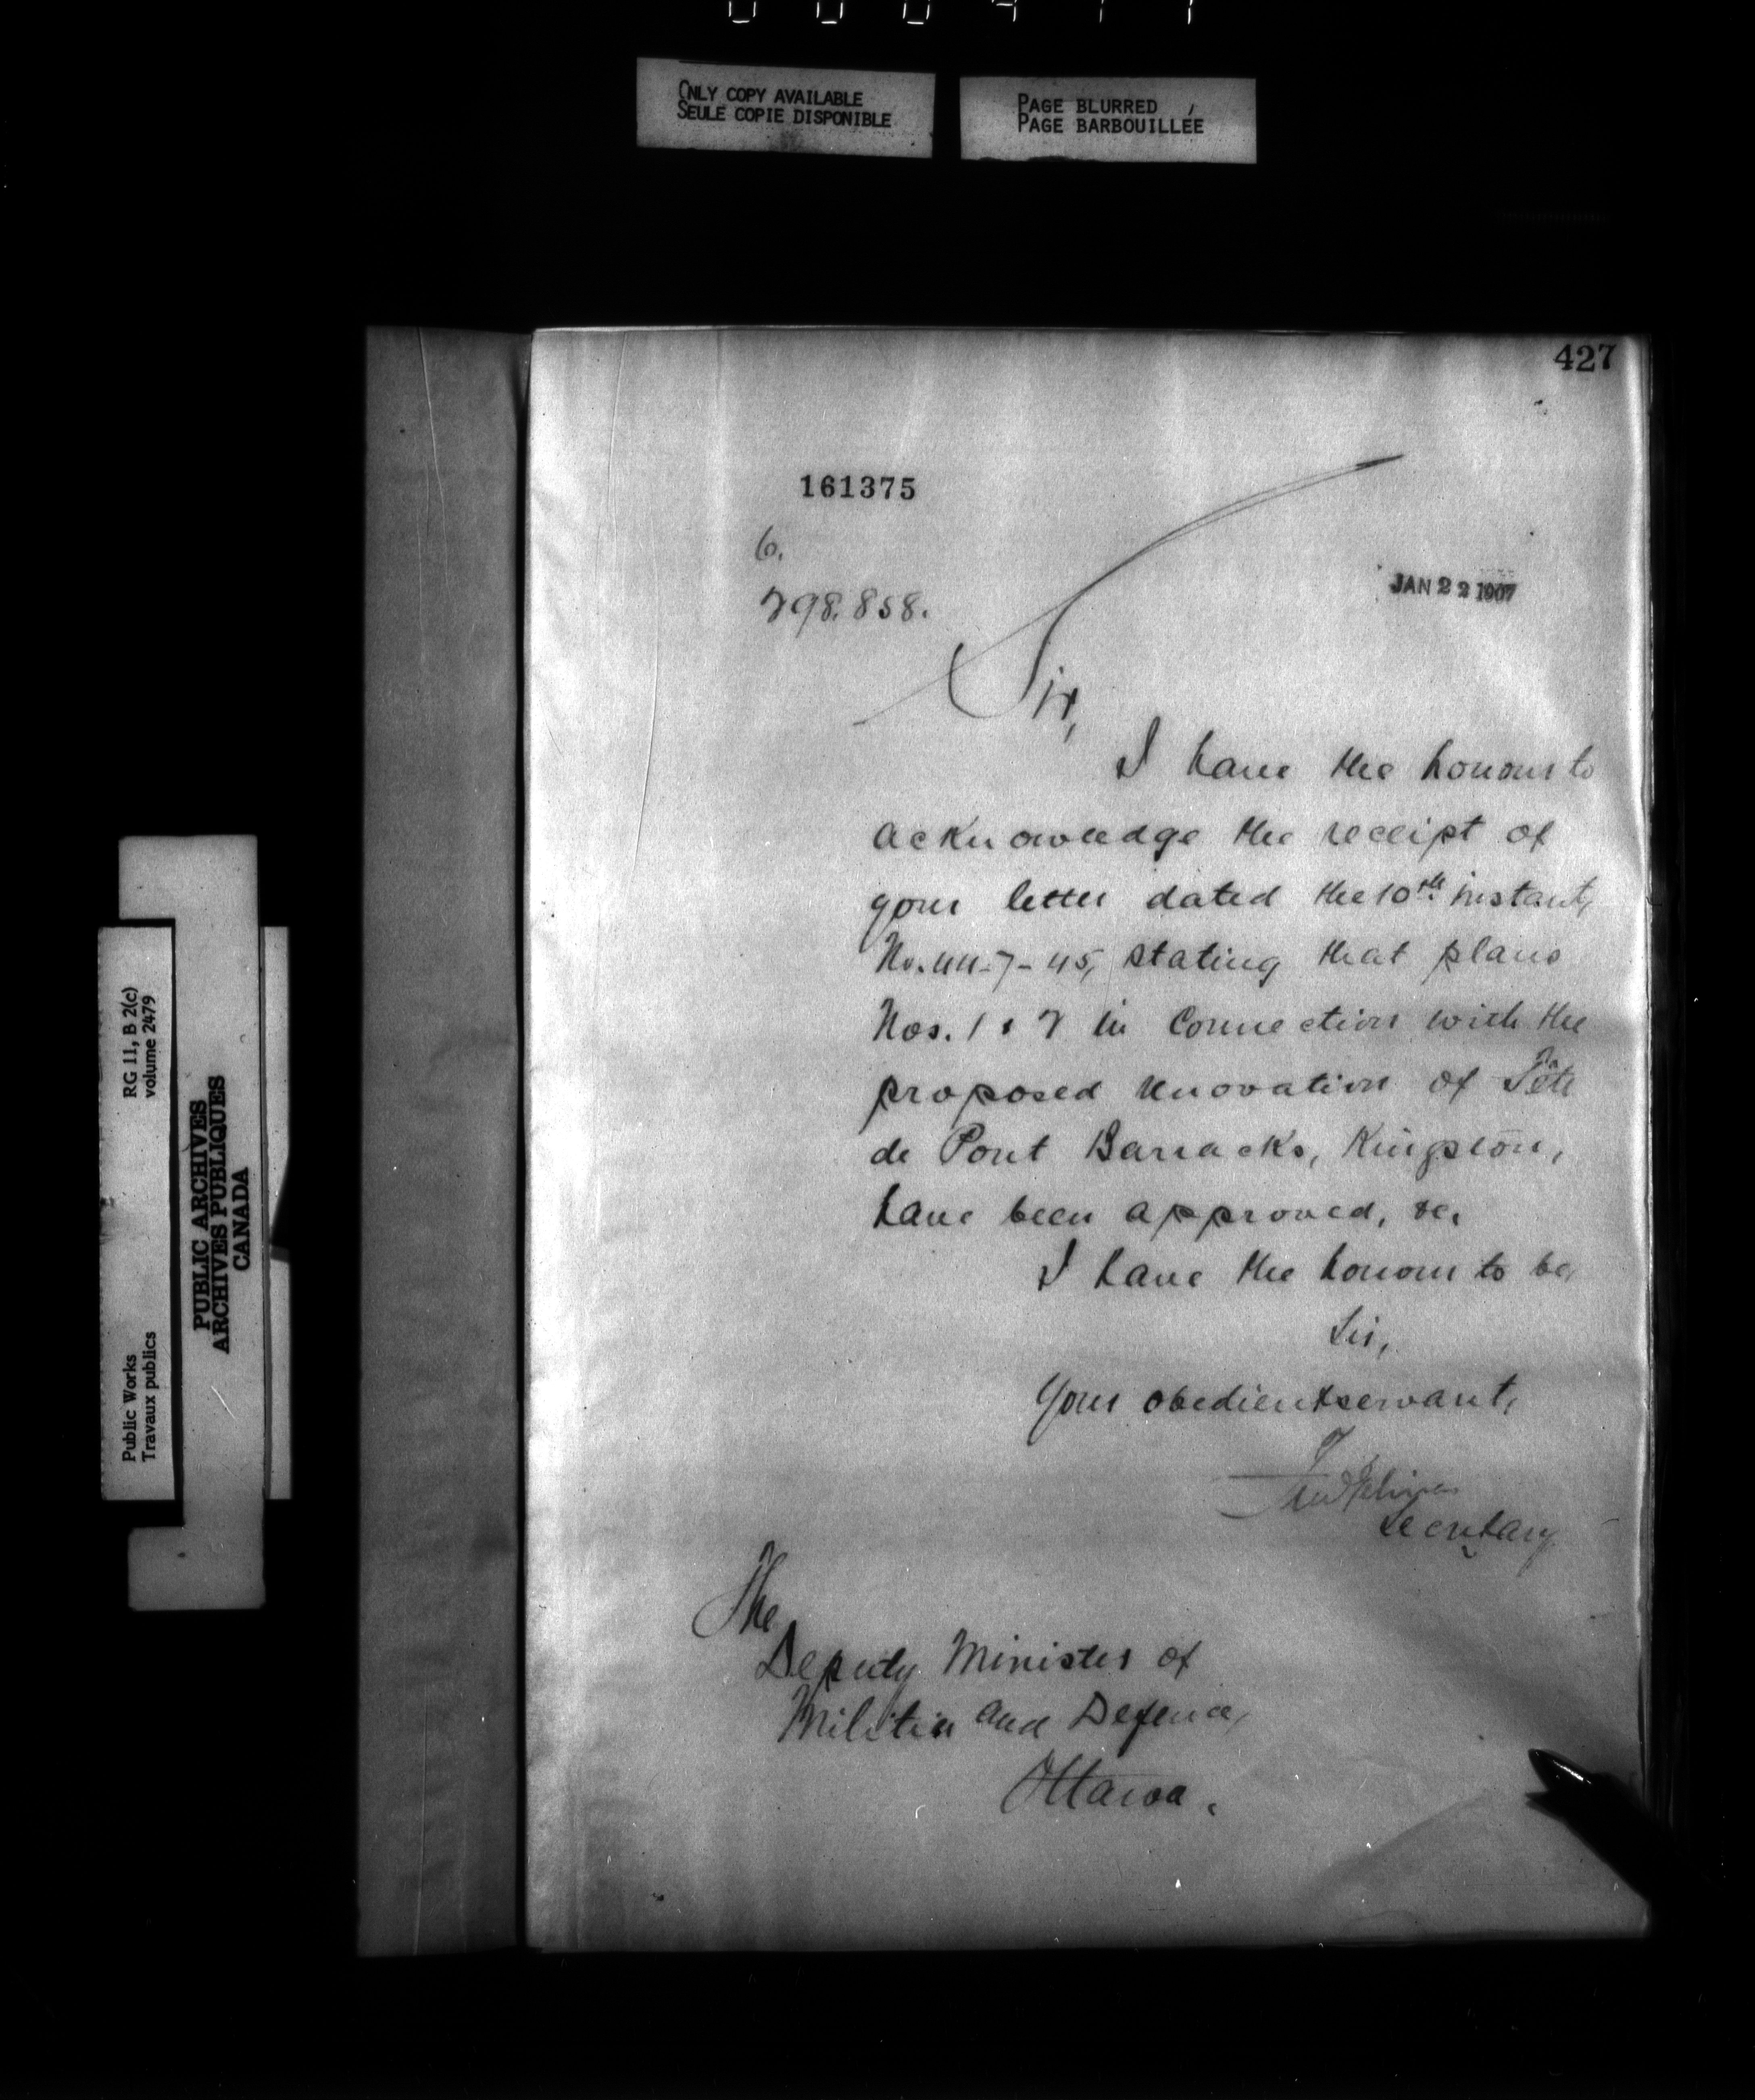 ONLY COPY AVAILABLE
SEULE COPIE DISPONIBLE
PAGE BLURRED
PAGE BARBOUILLÉE
427
161375
6.
298.858.
JAN 22 1907
Sir,
I have the honour to
acknowledge the receipt of
your letter dated the 10th instant,
No. 44-7-45, stating that plans
Nos. 1 & 2 in connection with the
proposed renovation of Tête
de Pont Barracks, Kingston,
have been approved, &c.
I have the honour to be,
Sir,
Your obedient servant,
Secretary
The
Deputy Minister of
Militia and Defence,
Ottawa.
RG 11, B 2(c)
volume 2479
Public Works
Travaux publics
PUBLIC ARCHIVES
ARCHIVES PUBLIQUES
CANADA